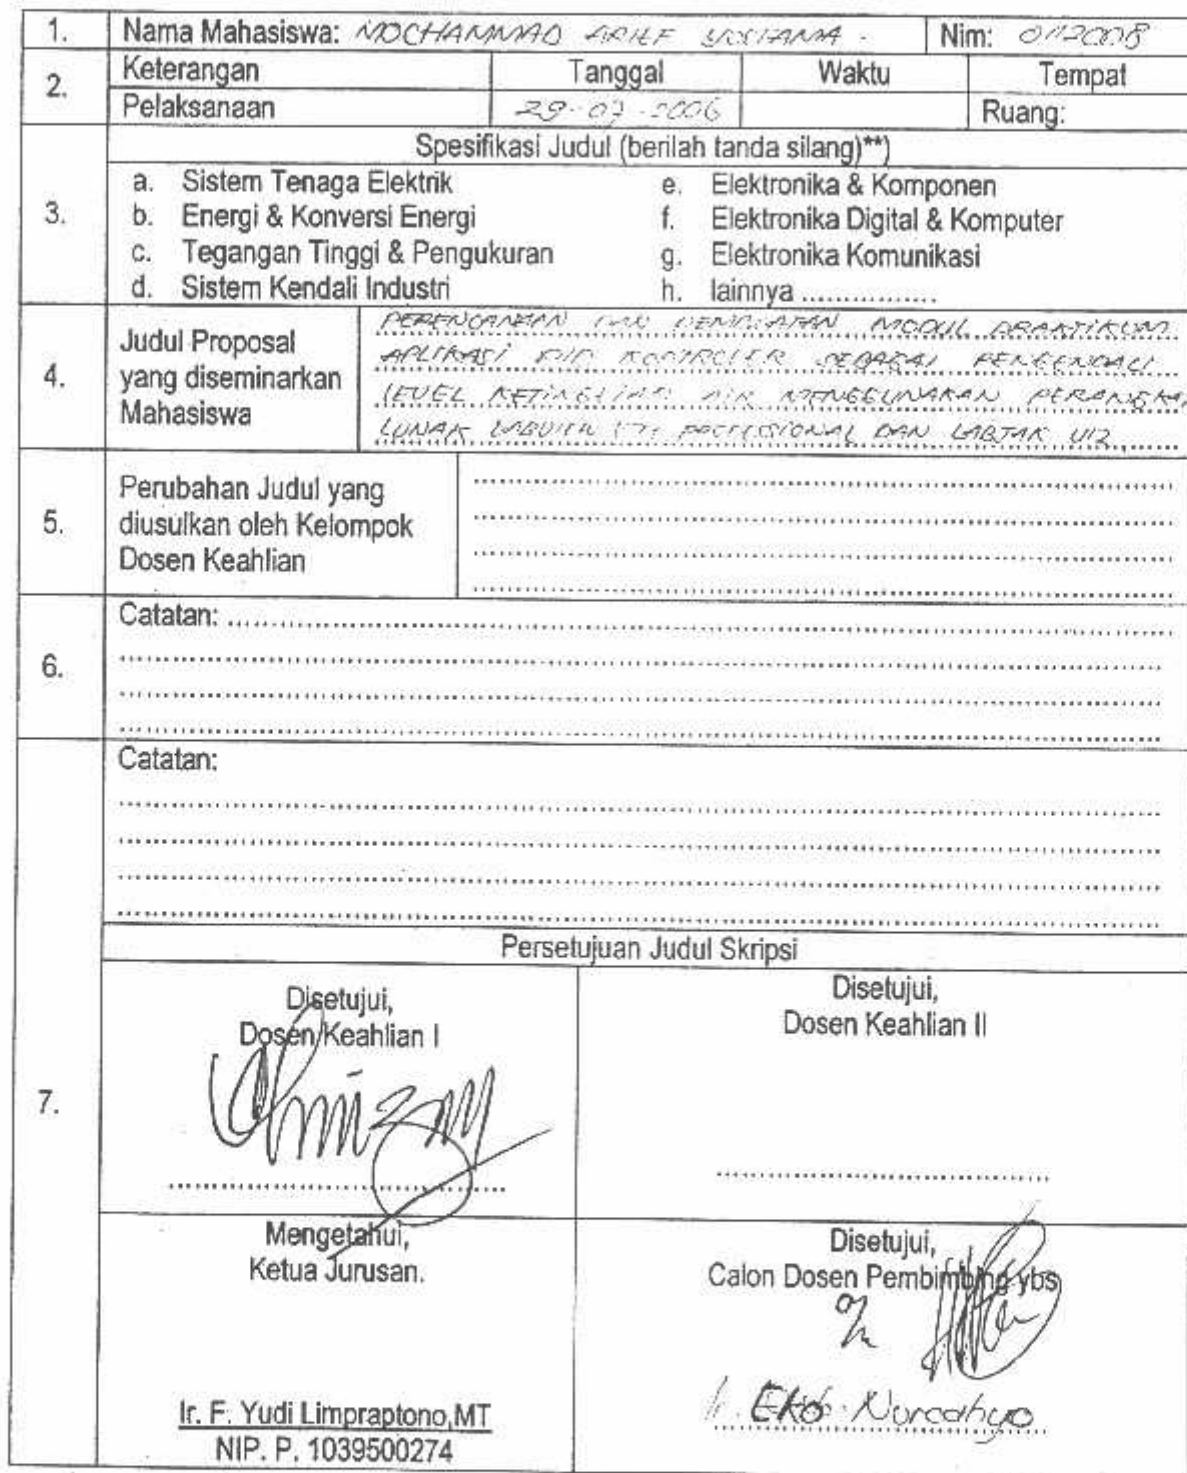 1. Nama Mahasiswa: MOCHAMMAD ARIEF Nim: 0112008
2. Keterangan Tanggal Waktu Tempat
Pelaksanaan 29-07-2006 Ruang:
3. Spesifikasi Judul (berilah tanda silang)**)
a. Sistem Tenaga Elektrik e. Elektronika & Komponen
b. Energi & Konversi Energi f. Elektronika Digital & Komputer
c. Tegangan Tinggi & Pengukuran g. Elektronika Komunikasi
d. Sistem Kendali Industri h. lainnya ................
4. Judul Proposal yang diseminarkan Mahasiswa
PERENCANAAN DAN PEMBUATAN MODUL PRAKTIKUM
APLIKASI PID KONTROLER SEBAGAI PENGENDALI
LEVEL KETINGGIAN AIR MENGGUNAKAN PERANGKAT
LUNAK LABVIEW PROFESSIONAL DAN LABJAK U12
5. Perubahan Judul yang
diusulkan oleh Kelompok
Dosen Keahlian
6. Catatan:
7. Catatan:
Persetujuan Judul Skripsi
Disetujui,
Dosen Keahlian I
Disetujui,
Dosen Keahlian II
Mengetahui,
Ketua Jurusan.
Ir. F. Yudi Limpraptono,MT
NIP. P. 1039500274
Disetujui,
Calon Dosen Pembimbing ybs
Ir. Eko Nurcahyo